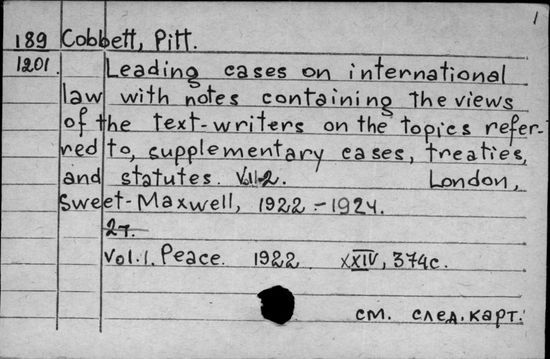 1
189 Cobbett, Pitt.
1201. Leading cases on international
law with notes containing the views
of the text-writers on the topics refer-
red to, supplementary cases, treaties,
and statutes. V.1-2. London,
Sweet-Maxwell, 1922-1924.
2т.
Vol.1. Peace. 1922 XXIV, 374c.
см. след. карт.